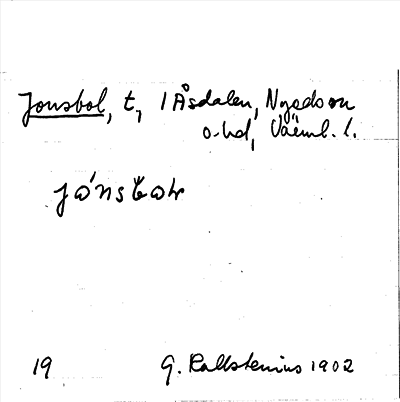 Jonsbol, t, 1 Åsdalen, Nyed sn
o. hd, Värml. l.
jónsbωɫ
19 G. Kallstenius 1902